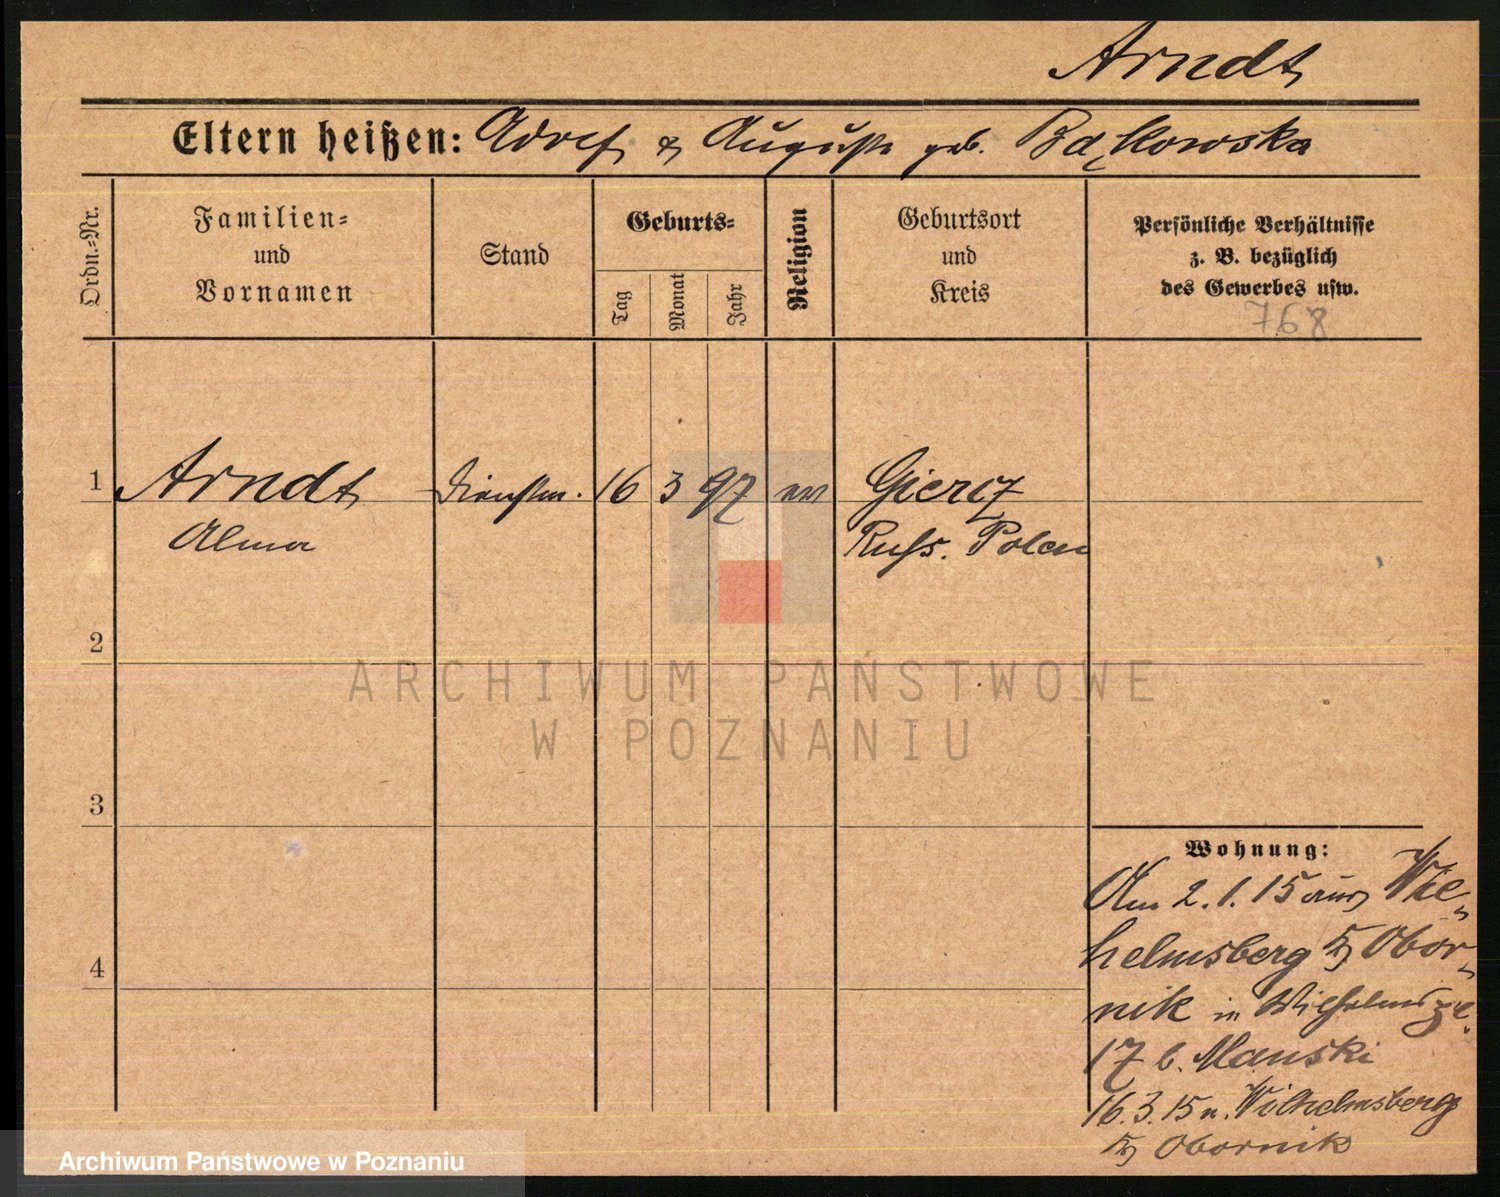 Arndt
Eltern heißen: Adolf & Auguste geb. Bąkowska
Ordn.=Nr.
Familien=
und
Vornamen
Stand
Geburts=
Tag
Monat
Jahr
Religion
Geburtsort
und
Kreis
Persönliche Verhältnisse
z. B. bezüglich
des Gewerbes usw.
768
1 Arndt Dienstm. 16 3 97 ev Giercz
Alma Russ. Polen
2
3
4
ARCHIWUM PAŃSTWOWE
W POZNANIU
Wohnung:
Am 2.1.15 aus Wil-
helmsberg Kr Obor-
nik in
17 b. Manski
16.3.15 n. Wilhelmsberg
Kr Obornik
Archiwum Państwowe w Poznaniu